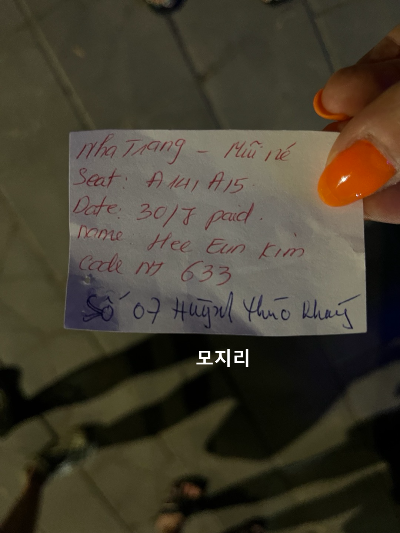 Nha Trang - Mũi né
Seat: A14, A15.
Date: 30/7 paid.
name Hee Eun Kim
Code NT 633
Số 07 Huỳnh Thúc Kháng
모지리